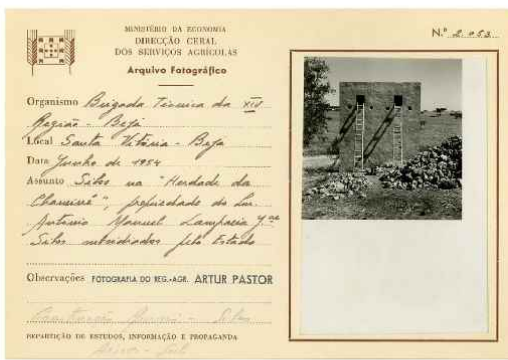 MINISTÉRIO DA ECONOMIA
DIRECÇÃO GERAL
DOS SERVIÇOS AGRÍCOLAS
Arquivo Fotográfico
N.º 2.053
Organismo Brigada Técnica da XIV
Região - Beja
Local Santa Vitória - Beja
Data Junho de 1954
Assunto Silos na "Herdade da
Chaminé", propriedade do Snr.
António Manuel Lampreia
Silos subsidiados pelo Estado
Observações FOTOGRAFIA DO REG.-AGR. ARTUR PASTOR
REPARTIÇÃO DE ESTUDOS, INFORMAÇÃO E PROPAGANDA